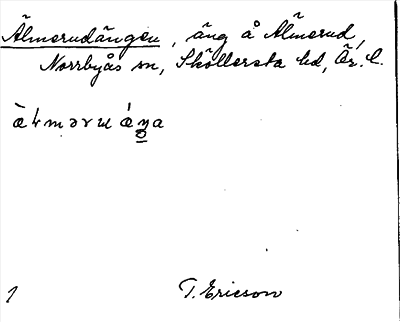 Älmerudängen, äng å Älmerud,
Norrbyås sn, Sköllersta hd, Ör. l.
1 T. Ericson